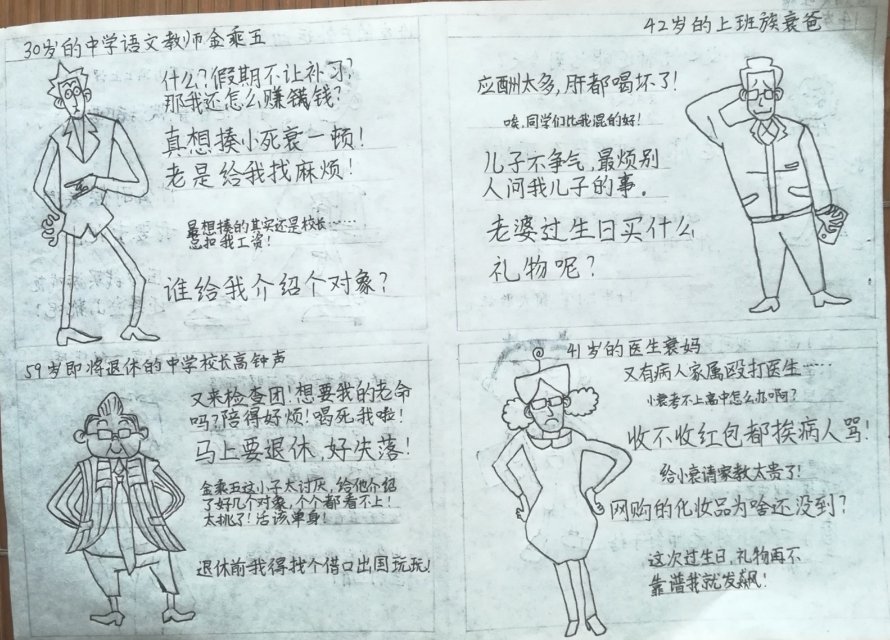 30岁的中学语文教师金乘五
什么?假期不让补习?
那我还怎么赚钱?
真想揍小死衰一顿!
老是给我找麻烦!
最想揍的其实还是校长……
总扣我工资!
谁给我介绍个对象?
42岁的上班族衰爸
应酬太多,肝都喝坏了!
唉,同学们比我混的好!
儿子不争气,最烦别
人问我儿子的事。
老婆过生日买什么
礼物呢?
59岁即将退休的中学校长高钟声
又来检查团!想要我的老命
吗?陪得好烦!喝死我啦!
马上要退休,好失落!
金乘五这小子太讨厌,给他介绍
了好几个对象,个个都看不上!
太挑了!活该单身!
退休前我得找个借口出国玩玩!
41岁的医生衰妈
又有病人家属殴打医生……
小衰考不上高中怎么办啊?
收不收红包都挨病人骂!
给小衰请家教太贵了!
网购的化妆品为啥还没到?
这次过生日,礼物再不
靠谱我就发飙!